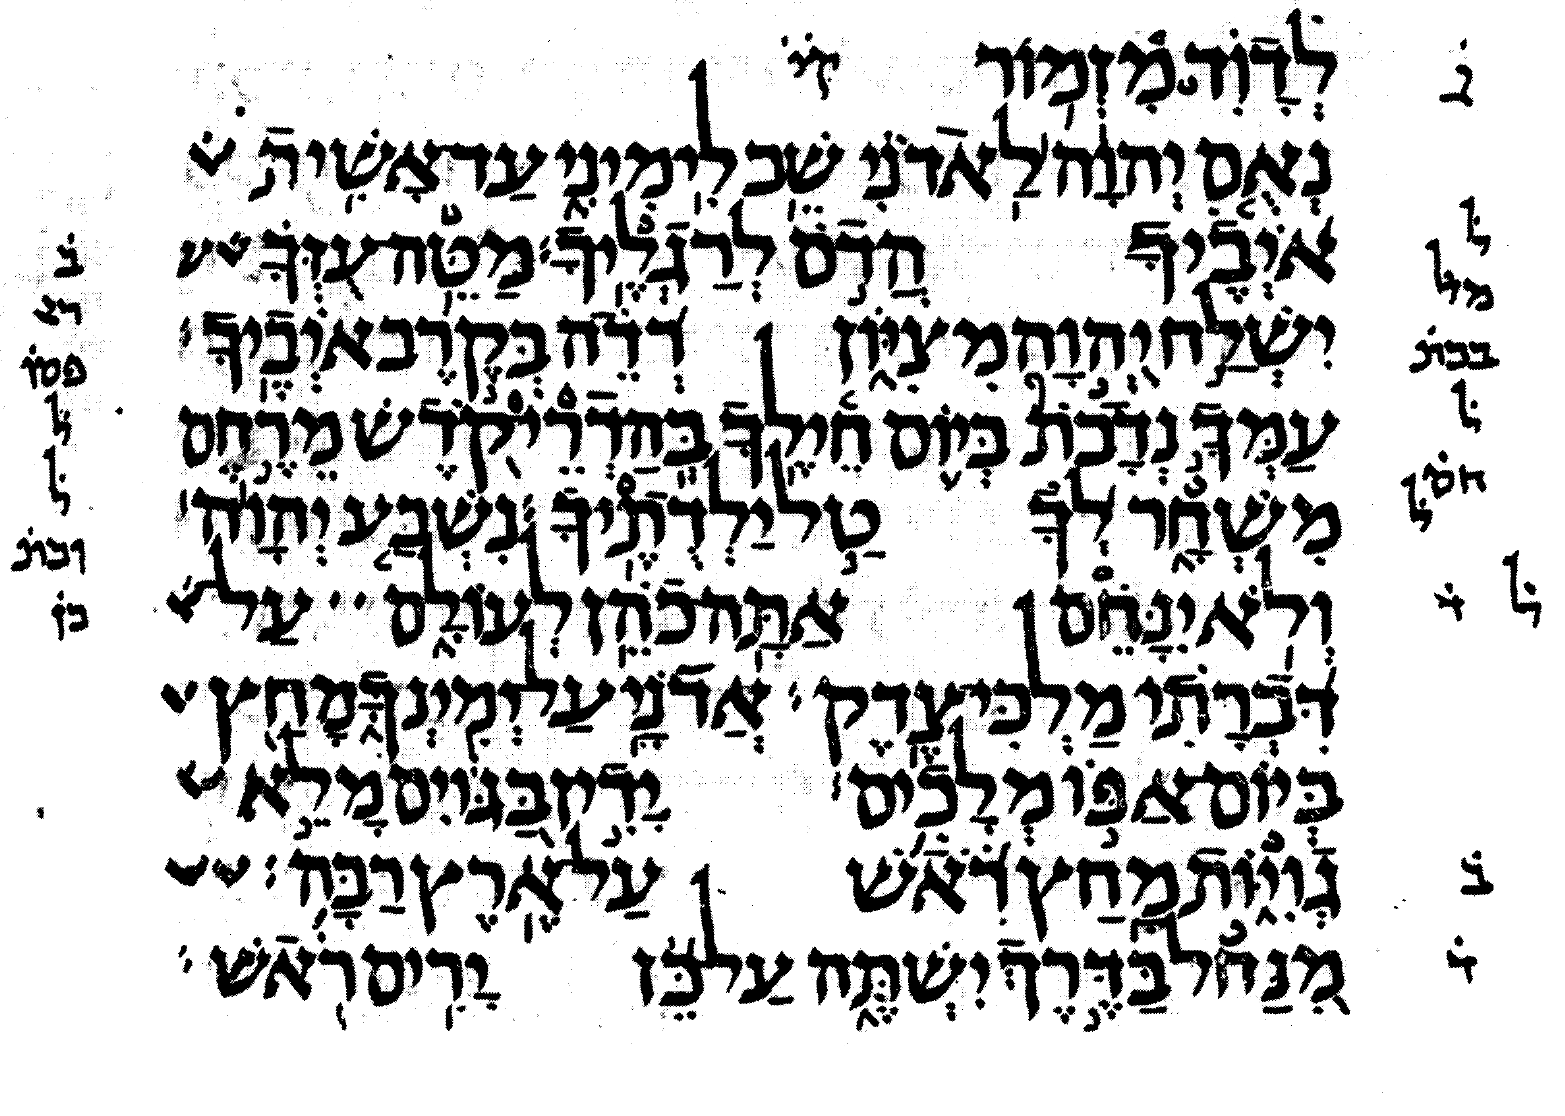 לְדָוִד מִזְמוֹר קי
נְאֻם יְהוָה לַאדֹנִי שֵׁב לִימִינִי עַד אָשִׁית
אֹיְבֶיךָ הֲדֹם לְרַגְלֶיךָ׃ מַטֵּה עֻזְּךָ
יִשְׁלַח יְהוָה מִצִּיּוֹן רְדֵה בְּקֶרֶב אֹיְבֶיךָ׃
עַמְּךָ נְדָבֹת בְּיוֹם חֵילֶךָ בְּהַדְרֵי קֹדֶשׁ מֵרֶחֶם
מִשְׁחָר לְךָ טַל יַלְדֻתֶיךָ׃ נִשְׁבַּע יְהוָה׀
וְלֹא יִנָּחֵם אַתָּה כֹהֵן לְעוֹלָם עַל
דִּבְרָתִי מַלְכִּי צֶדֶק׃ אֲדֹנָי עַל יְמִינְךָ מָחַץ
בְּיוֹם אַפּוֹ מְלָכִים׃ יָדִין בַּגּוֹיִם מָלֵא
גְוִיּוֹת מָחַץ רֹאשׁ עַל אֶרֶץ רַבָּה׃
מִנַּחַל בַּדֶּרֶךְ יִשְׁתֶּה עַל כֵּן יָרִים רֹאשׁ׃